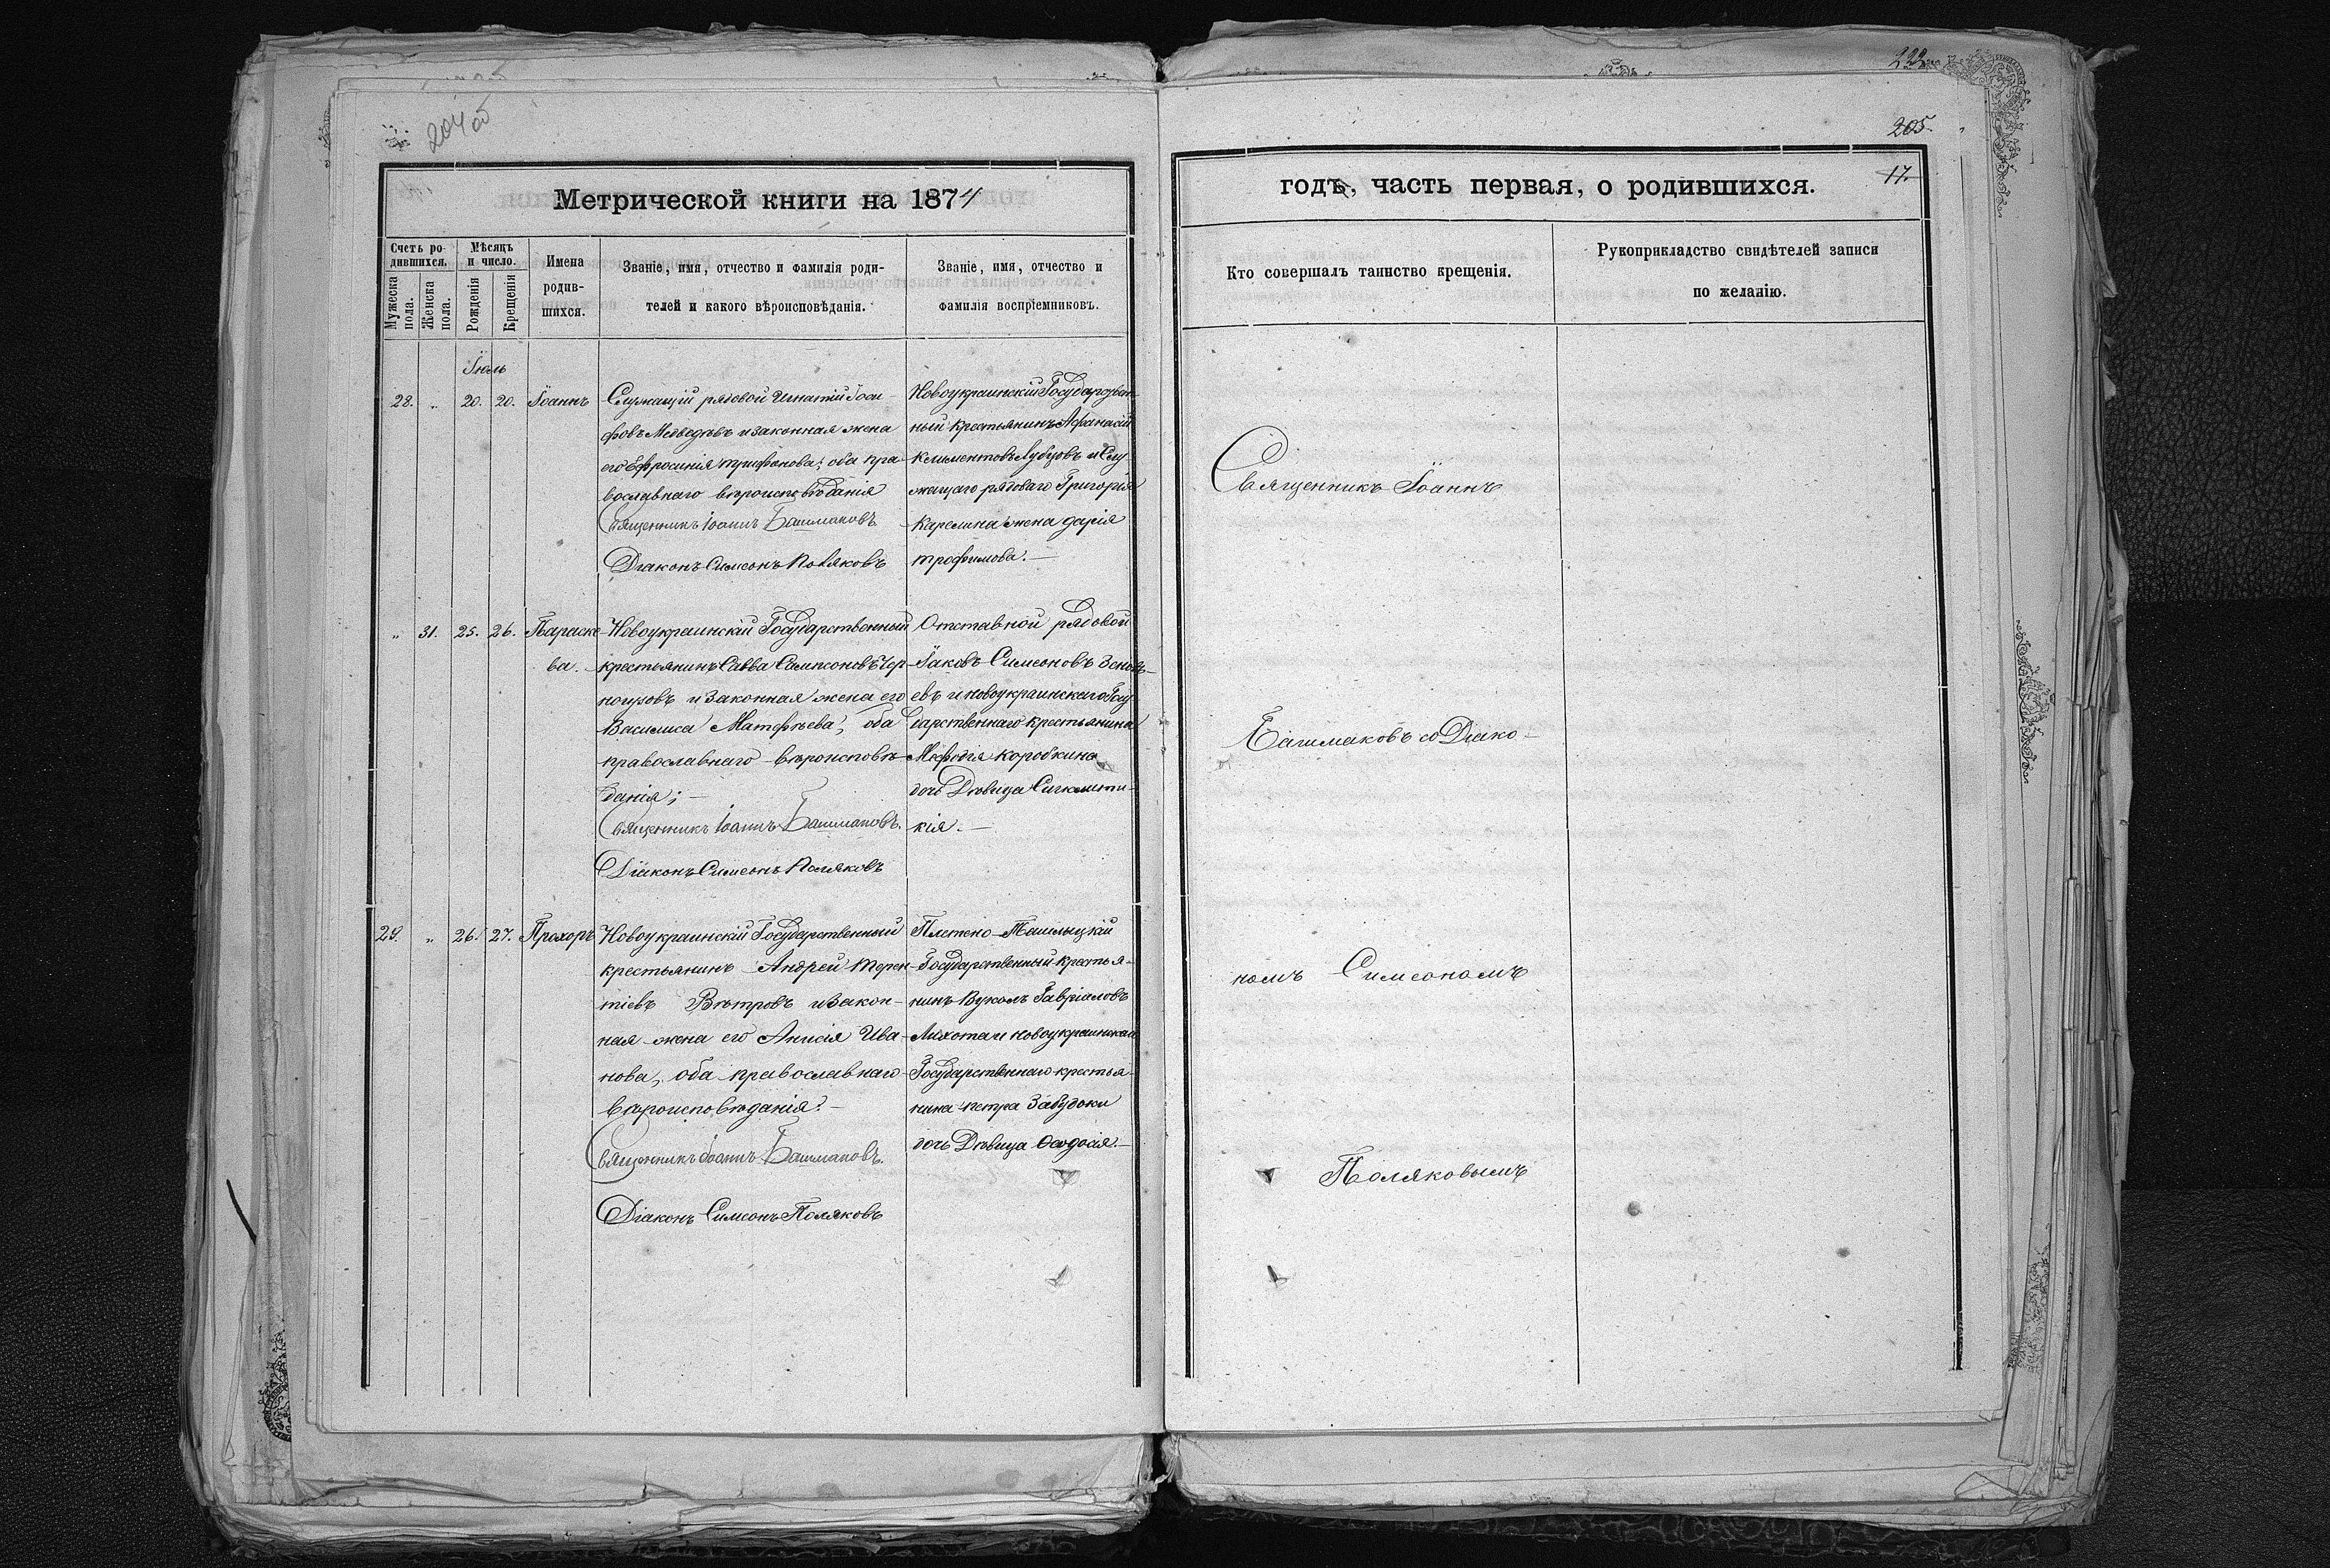 204 об
222
205.
17.
Метрической книги на 1874
годъ, часть первая, о родившихся.
Счетъ ро-
дившихся.
Мужеска
пола.
Женска
пола.
Мѣсяцъ
и число.
Рожденія
Крещенія
Имена
родив-
шихся.
Званіе, имя, отчество и фамилія роди-
телей и какого вѣроисповѣданія.
Званіе, имя, отчество и
фамилія воспріемниковъ.
Кто совершалъ таинство крещенія.
Рукоприкладство свидѣтелей записи
по желанію.
Іюль
28. „ 20. 20. Іоаннъ
Служащій рядовой Игнатій Іоси-
фовъ Медведѣвъ и законная жена
его Ефросинія трифонова; оба пра-
вославнаго вѣроисповѣданія
Священникъ Іоаннъ Башмаковъ
Діаконъ Симеонъ Поляковъ
Новоукраинскій Государствен-
ный крестьянинъ Афанасій
Климентовъ и Слу
жащаго рядоваго Григорія
Карелина жена дарія
трофимова.—
„ 31. 25. 26. Параске-
ва.
Новоукраинскій Государственный
крестьянинъ Савва Сампсоновъ Чер-
ногузовъ и законная жена его
Василиса Матфѣева, оба
православнаго вѣроисповѣ-
данія; —
Священникъ Іоаннъ Башмаковъ.
Діаконъ Симеонъ Поляковъ
Отставной рядовой
Іаковъ Симеоновъ
евъ и новоукраинскаго Госу
дарственнаго крестьянина
Мефодія Коробкина
дочь Дѣвица Сигклити-
кія.—
29. „ 26. 27. Прохоръ
Новоукраинскій Государственный
крестьянинъ Андрей Терен-
тіевъ Вѣтровъ и закон-
ная жена его Анисія Ива-
нова, оба православнаго
вѣроисповѣданія.—
Священникъ Іоаннъ Башмаковъ.
Діаконъ Симеонъ Поляковъ
Плетено-Ташлыцкій
Государственный крестья-
нинъ Вуколъ Гавріиловъ
Лихота и новоукраинскаго
Государственнаго крестья-
нина петра Забудоки
дочь Дѣвица Ѳеодосія.—
Священникъ Іоаннъ
Башмаковъ со Діако-
номъ Симеономъ
Поляковымъ